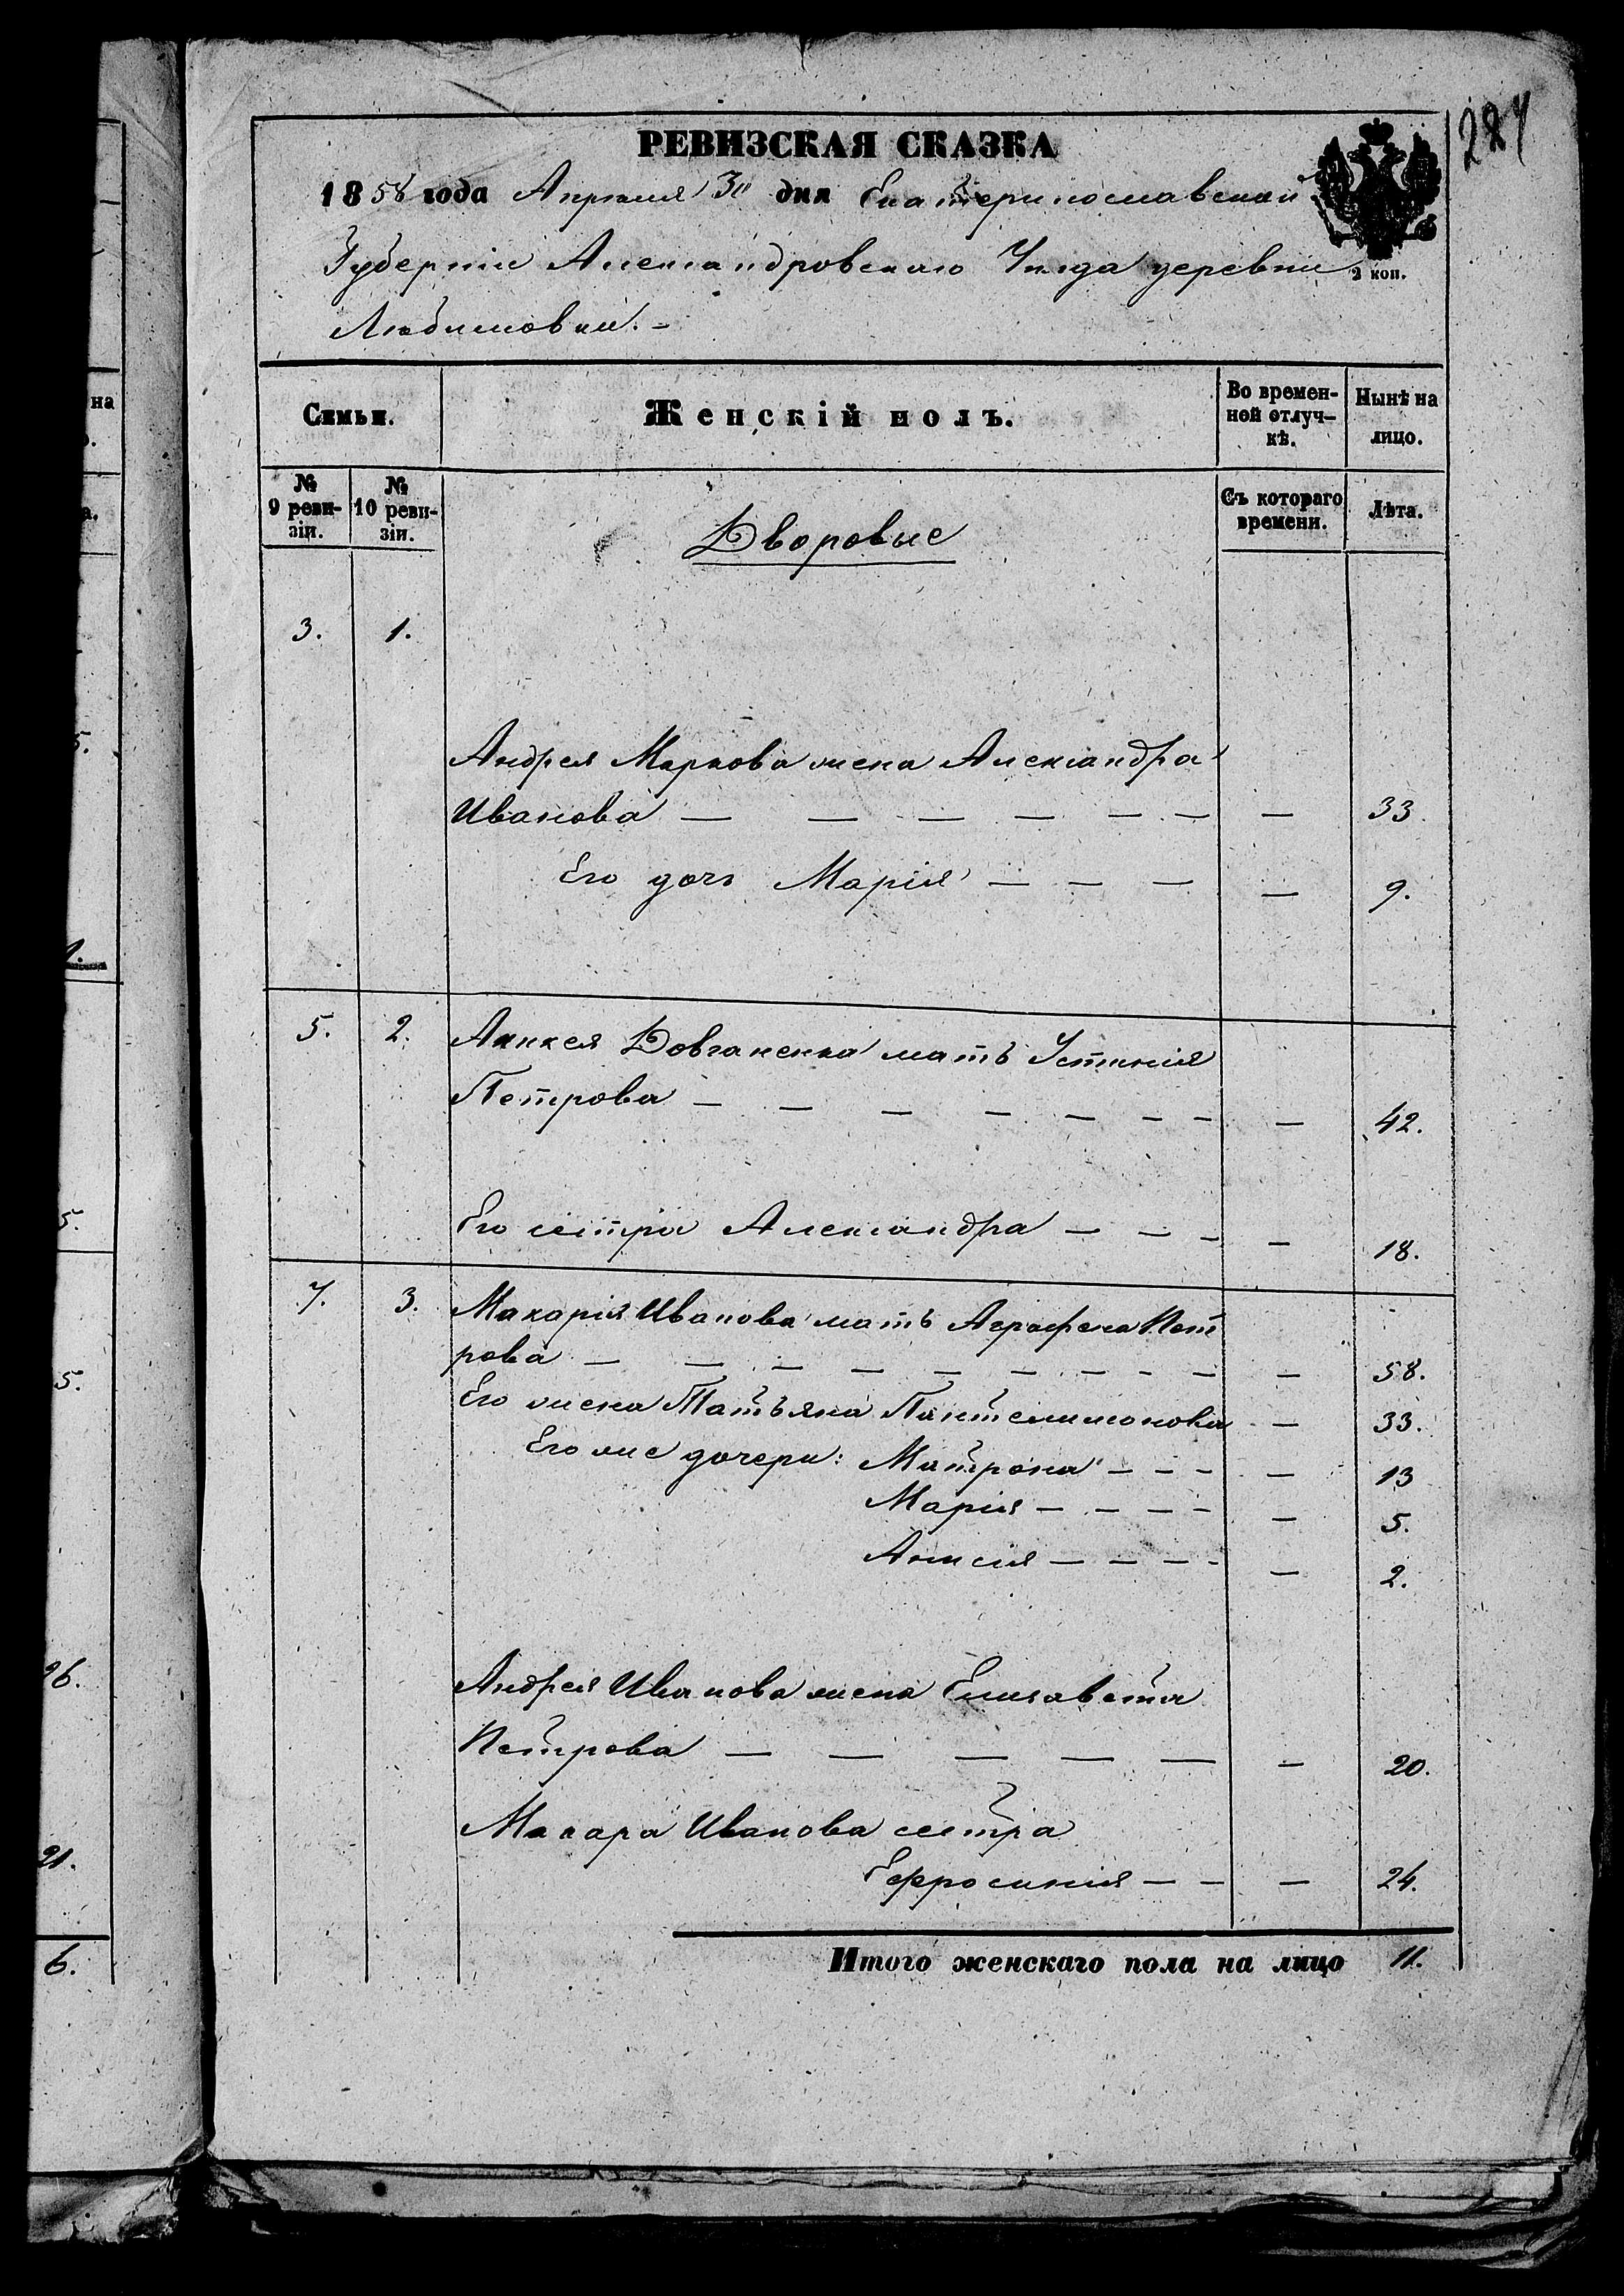 284
РЕВИЗСКАЯ СКАЗКА
1858 года Апреля 3" дня Екатеринославской
Губерніи Александровскаго Уѣзда деревни
Любимовки.
2 коп.
Семьи.
Женскій полъ.
Во времен-
ной отлуч-
кѣ.
Нынѣ на
лицо.
№
9 реви-
зіи.
№
10 реви-
зіи.
Съ котораго
времени.
Лѣта.
Дворовые
3. 1.
Андрея Маркова жена Александра
Иванова — — — — — — — 33.
Его дочь Марія — — — — 9.
5. 2. Довганенка мать Устинія
Петрова — — — — — — — — 42.
Его сестра Александра — — — — 18.
7. 3. Макарія Иванова мать Аграфена Пет
рова — — — — — — — — — — 58.
Его жена Татьяна Пантелимонова — 33.
Его же дочери: Матрона — — — — 13
Марія — — — — — 5.
Анисия — — — — — 2.
Андрея Иванова жена Елизавета
Петрова — — — — — — 20.
Макара Иванова сестра
Ефросинія — — — 24.
Итого женскаго пола на лицо 11.
на
5.
5.
26.
21.
6.